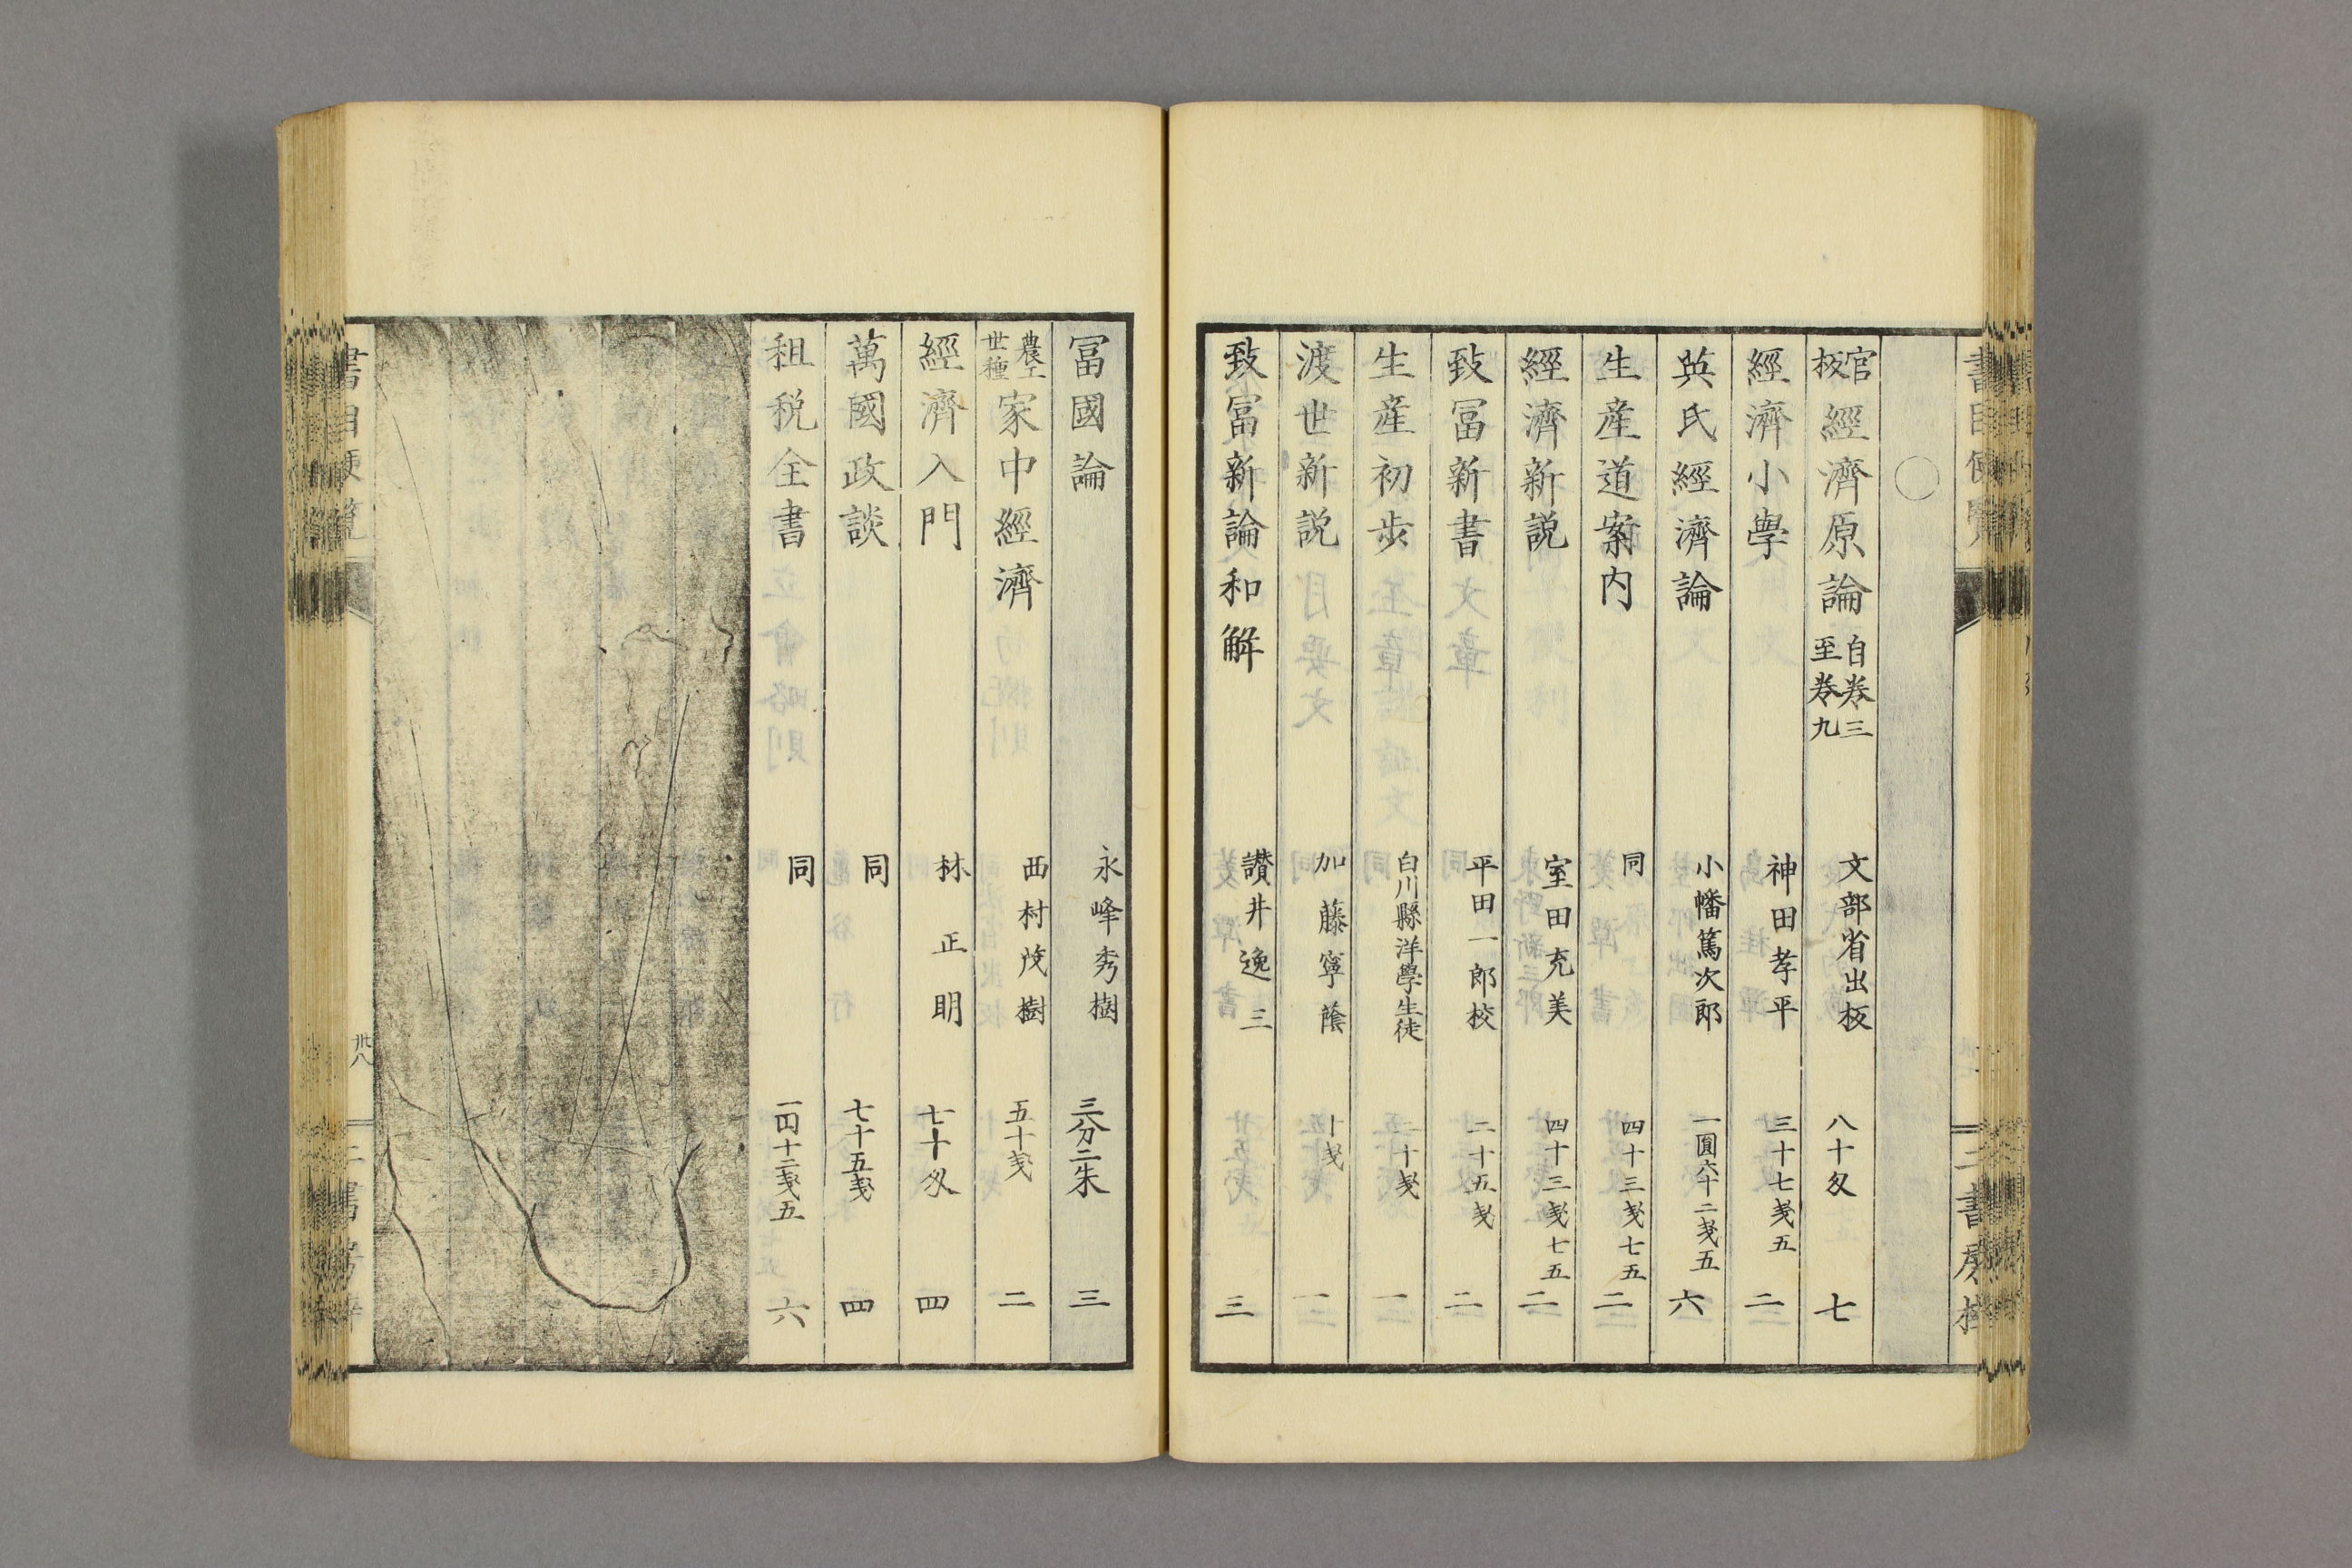 書目便覧
二書房梓
○
官板 經濟原論 自卷三至卷九 文部省出板 八十匁 七
經濟小學 神田孝平 三十七戔五 二
英氏經濟論 小幡篤次郎 一圓六十二戔五 六
生産道案内 同 四十三戔七五 二
經濟新説 室田充美 四十三戔七五 二
致冨新書 平田一郎校 二十五戔 二
生産初歩 白川縣洋學生徒 二十戔 一
渡世新説 加藤寧蔭 十戔 一
致冨新論和解 讃井逸三 三
冨國論 永峰秀樹 三分二朱 三
農工世種 家中經濟 西村茂樹 五十戔 二
經濟入門 林正明 七十匁 四
萬國政談 同 七十五戔 四
租税全書 同 一円十二戔五 六
書目便覧
卅八